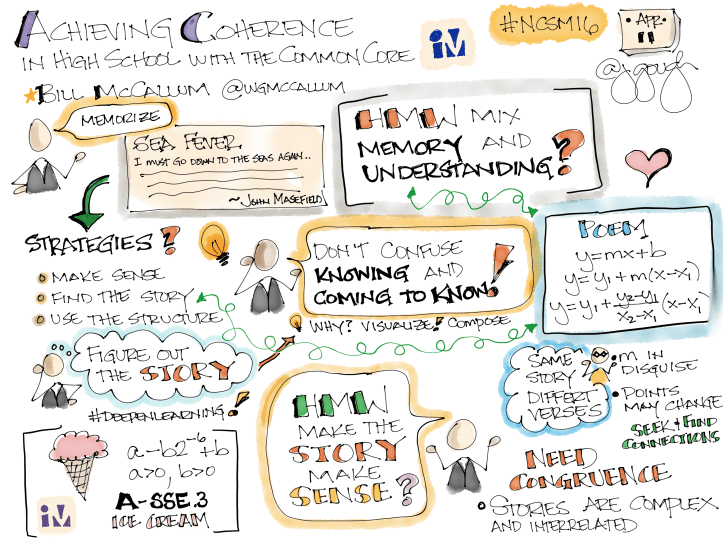 ACHIEVING COHERENCE
IN HIGH SCHOOL WITH THE COMMON CORE
iM
#NCSM16
APR
11
@jgough
BILL MCCALLUM @WGMCCALLUM
MEMORIZE
SEA FEVER
I MUST GO DOWN TO THE SEAS AGAIN..
~ JOHN MASEFIELD
HMW MIX
MEMORY AND
UNDERSTANDING?
STRATEGIES?
MAKE SENSE
FIND THE STORY
USE THE STRUCTURE
DON'T CONFUSE
KNOWING AND
COMING TO KNOW!
WHY? VISUALIZE! COMPOSE
POEM
y=mx+b
y=y₁+m(x-x₁)
y=y₁+(y₂-y₁)/(x₂-x₁)(x-x₁)
FIGURE OUT
THE STORY
#DEEPENLEARNING!
SAME
STORY
DIFFERT
VERSES
M IN
DISGUISE
POINTS
MAY CHANGE
SEEK + FIND
CONNECTIONS
a-b2⁻⁶+b
a>0, b>0
A-SSE.3
ICE CREAM
iM
HMW
MAKE THE
STORY
MAKE
SENSE?
NEED
CONGRUENCE
STORIES ARE COMPLEX
AND INTERRELATED